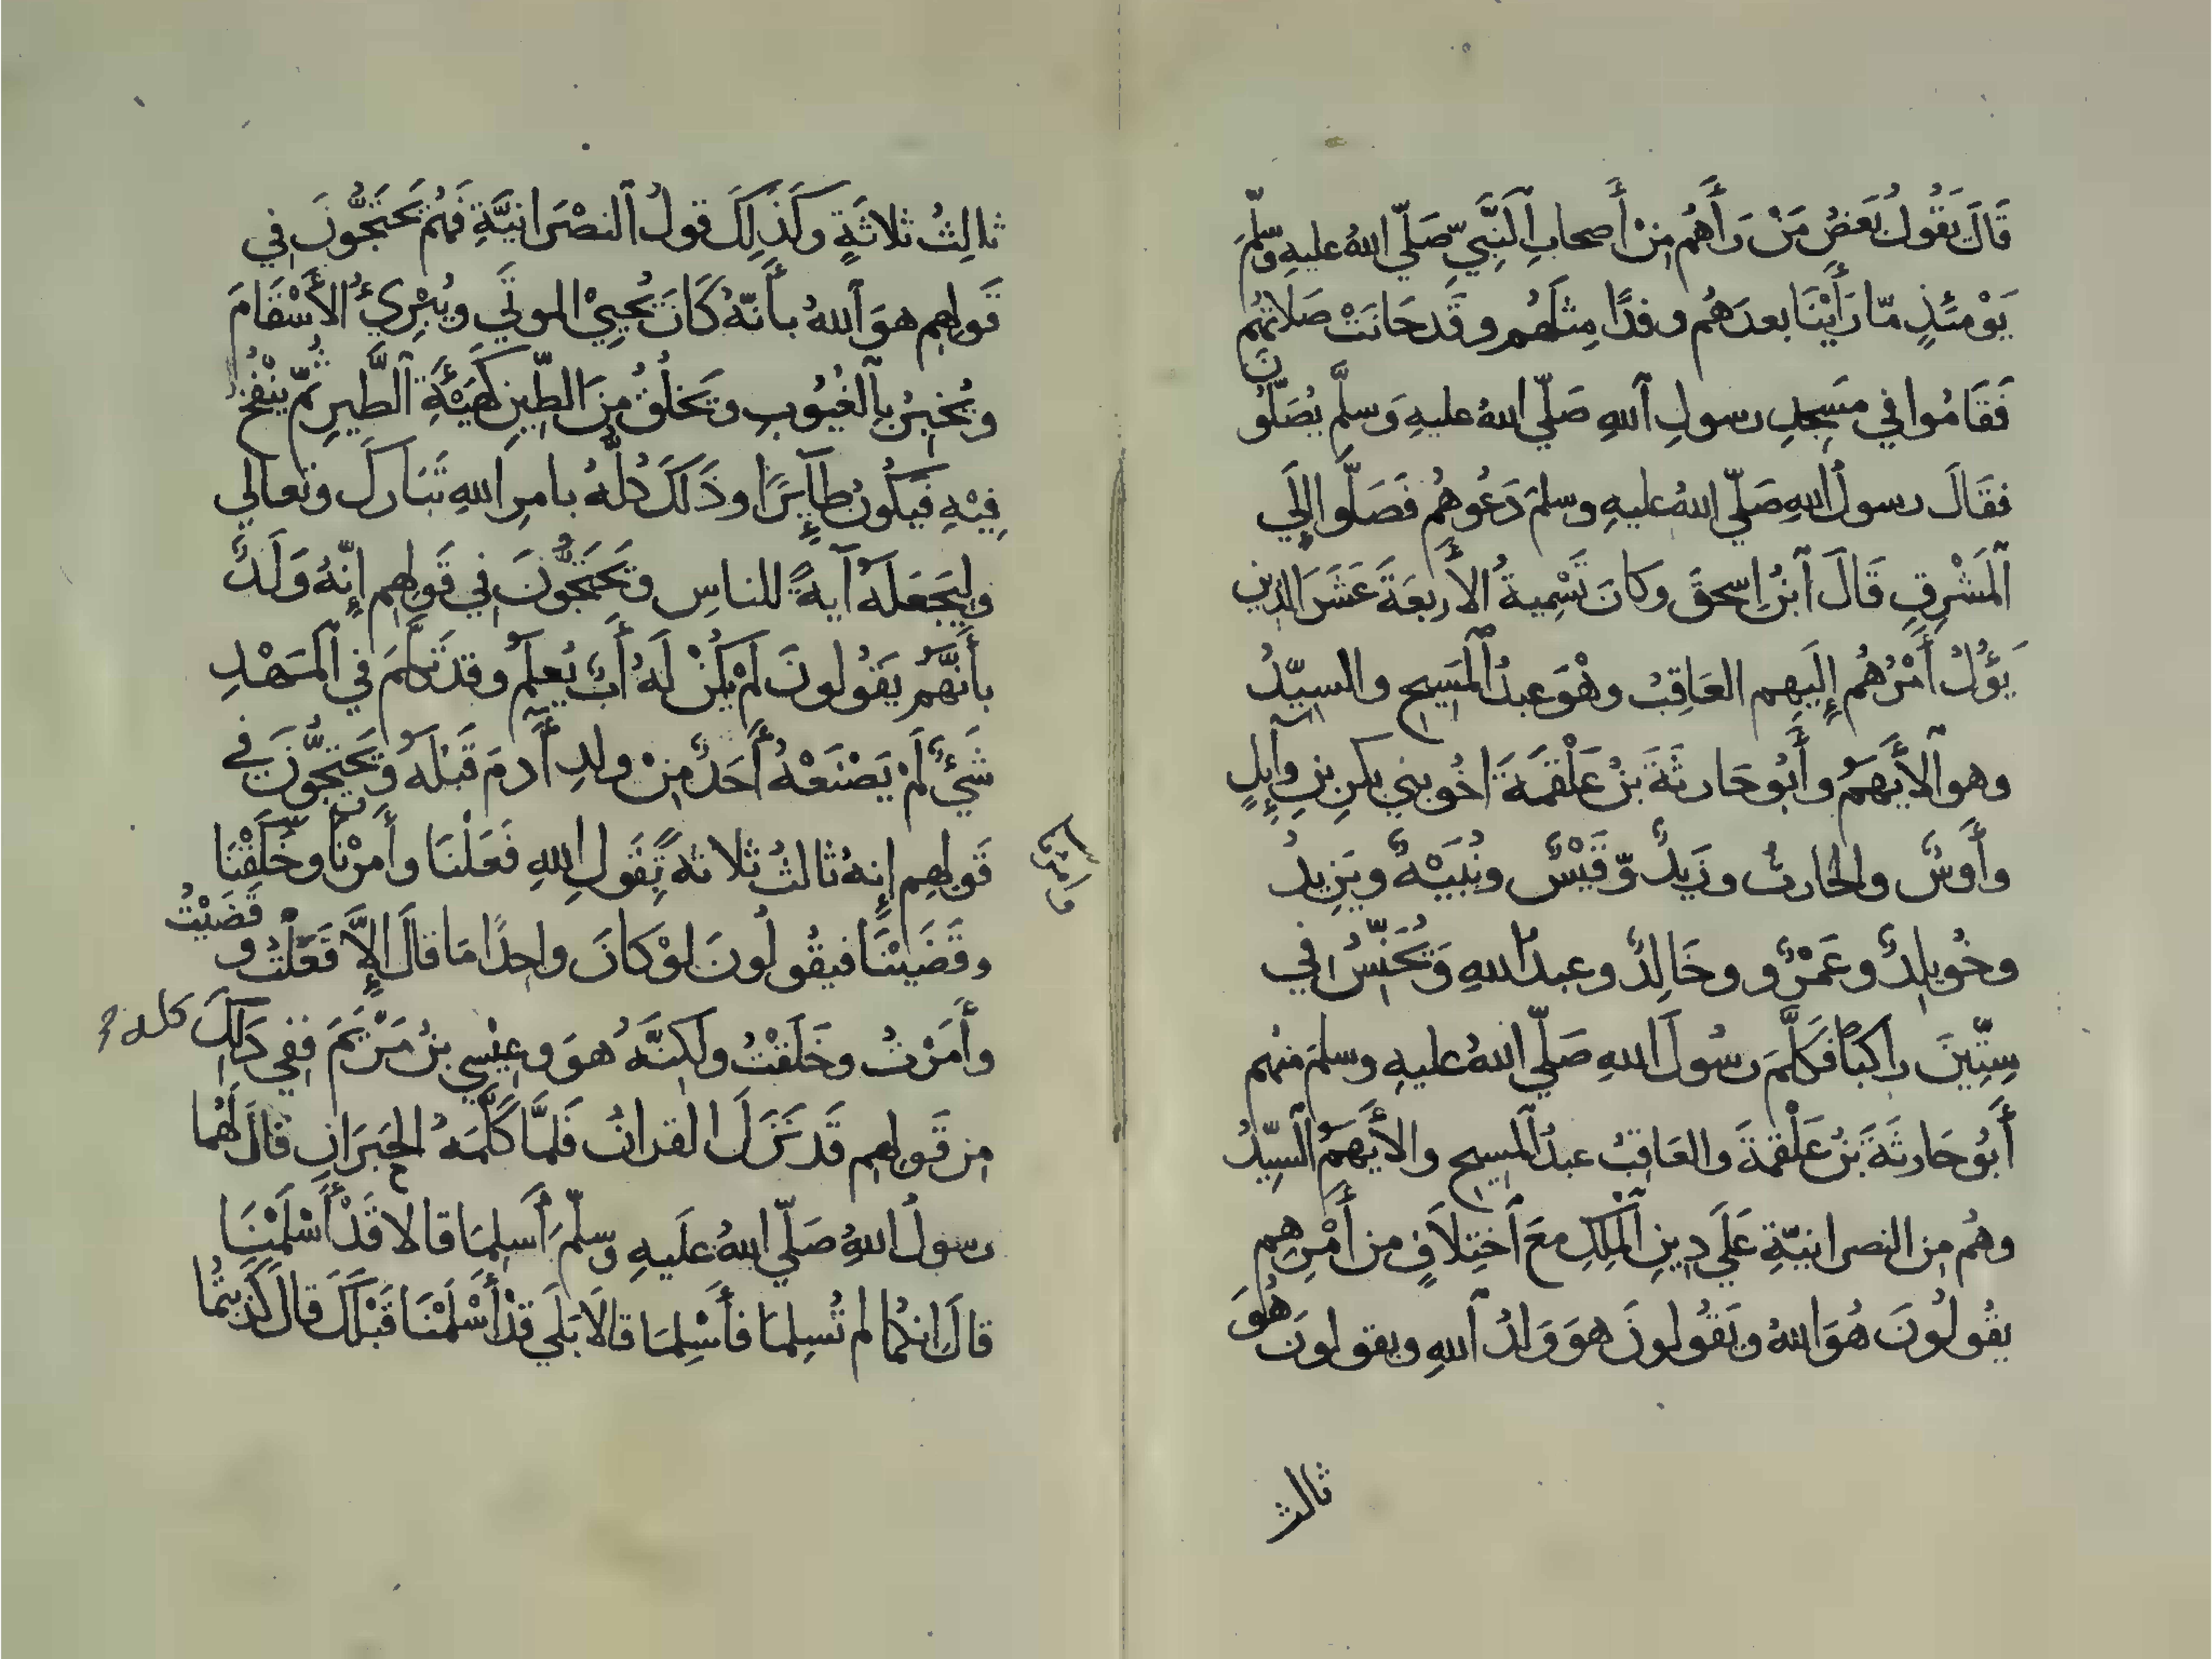 قَالَ يَقُولُ بَعْضُ مَنْ رَأَهُم مِنْ أَصحابِ ٱلنَّبِيِّ صَلّي اللهُ عليهِ وَسّلَّمَ
يَوْمَئذٍ مّا رَأَيْنَا بعدَهُم وفدًا مِثلَهُم وقَد حَانَتْ صَلاتُهُم
فَقَامُوا في مَسجِدِ رسولِ ٱللهِ صَلّي اللهُ عليهِ وَسلَّم يُصَلُّون
فقَالَ رسولُ اللهِ صَلّي اللهُ عليهِ وسلمَ دَعُوهُم فَصَلَّوا إِلَي
ٱلمَشْرِقِ قَالَ ٱبنُ إِسحقَ وَكانَ تَسْمِيةُ الأَربعَةَ عَشَرَ الذِين
يَؤُلُ أَمْرُهُم إِلَيهِم العَاقِبُ وهْوَ عبدُ ٱلمَسِيحِ والسيّدُ
وهو ٱلأَيْهَمُ وأَبُو حَارثَةَ بنُ عَلْقَمَةَ اخُو بني بكرِ بنِ وآئِلٍ
وأَوسٌ والحارثُ وزَيدٌ وّقَيْسٌ ونُبَيْهٌ ويَزِيدُ
وخُوَيلِدٌ وعَمْرٌو وخَالِدٌ وعبدُ اللهِ وَيُحَنِّسُ في
سِتِّينَ راكبًا فكَلَّمَ رسُولَ اللهِ صَلّي اللهُ عليهِ وسلمَ منهُم
أَبُو حَارثَةَ بنُ عَلْقمَةَ والعَاقِبُ عبدُ ٱلمَسِيحِ والأَيْهَمُ ٱلسَّيِّدُ
وهُم مِن النصرانيّةِ عَلَي دِينِ ٱلمَلِكِ معَ ٱختِلاَفٍ من أَمْرِهِم
يقُولُونَ هُوَ اللهُ ويَقُولونَ هوَ وَلدُ ٱللهِ ويقولونَ هُوَ
ثالث
ثالِثُ ثلاثَةٍ وكَذَلِكَ قولُ ٱلنصْرَانيَّةِ فَهُم يَحْتَجُّونَ في
قَولِهِم هوَ ٱللهُ بأَنّهُ كَانَ يُحيِيْ الموتَي ويُبْرِيُ الأَسْقَامَ
ويُخبِرُ بِٱلغُيُوبِ ويَخلُقُ مِنَ الطّينِ كَهَيْئَةِ ٱلطَّيرِ ثُمّ يَنْفُخُ
فِيْهِ فَيَكُونُ طآئِرًا وذَلكَ كُلُّهُ بامرِ اللهِ تَبَاركَ وتعالي
ولِيَجْعَلَهُ آيةً للناسِ ويَحْتَجُّونَ في قَولِهِم إِنّهُ وَلَدٌ
بأَنَّهُم يَقُولونَ لَمْ يَكُنْ لَهُ أَبٌ يُعلَمُ وقد تَكلَّمَ في ٱلمَهْدِ
شَيْءٌ لَمْ يَصْنَعْهُ أَحَدٌ مِنْ ولدِ أَدمَ قَبْلَهُ ويَحتجُّونَ في
قَولِهِم إِنهُ ثالثُ ثلاثةٍ بِقَولِ اللهِ فَعَلْنَا وأَمَرْنَا وخَلَقْنَا
وأمرنا
وقَضَيْنَا فيقُولُونَ لوْ كَانَ واحِدًا مَا قالَ إِلاَّ فَعَلْتُ وقَضَيْتُ
وأَمَرْتُ وخَلَقْتُ ولَكِنَّهُ هوَ وعِيْسي بنُ مَرْيَمَ ففِي ذَلِكَ كله
مِن قَولِهِم قَد نَزَلَ القرانُ فَلَمَّا كَلَّمَهُ الحَبْرَانِ قالَ لَهُما
رسولُ اللهِ صَلّي اللهُ عَلَيهِ وسلّمَ أَسلِمَا قالا قَدْ أَسْلَمْنَا
قالَ إنكُما لم تُسلِمَا فأَسْلِمَا قالَا بَلَي قدْ أَسْلَمْنَا قَبْلَكَ قالَ كَذَبتُما